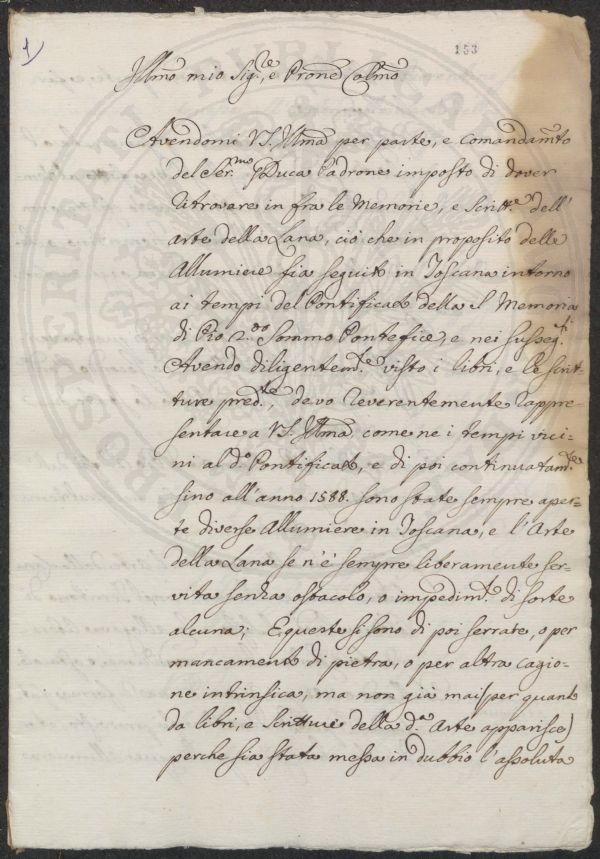 1
153
Jllmo mio Sig.re, e Prone Colmo
Avendomi VS. Jllma per parte, e comandam.to
del Ser.mo G. Duca Padrone imposto di dover
ritrovare in fra le Memorie, e Scritt.e dell'
Arte della Lana, ciò che in proposito delle
Allumiere sia seguito in Toscana intorno
ai tempi del Pontificato della S. Memoria
di Pio 2.do Sommo Pontefice, e nei susseg.ti
Avendo diligentem.te visto i libri, e le scrit-
ture pred.te, devo reverentemente rappre-
sentare a VS. Jllma come ne i tempi vici-
ni al d.o Pontificato, e di poi continuatam.te
sino all'anno 1588. sono state sempre aper-
te diverse Allumiere in Toscana, e l'Arte
della Lana se n'è sempre liberamente ser-
vita senza ostacolo, o impedim.to di sorte
alcuna; E queste si sono di poi serrate, o per
mancamento di pietra, o per altra cagio-
ne intrinsica, ma non già mai (per quanto
da libri, e Scritture della d.a Arte apparisce)
perche sia stata messa in dubbio l'assoluta